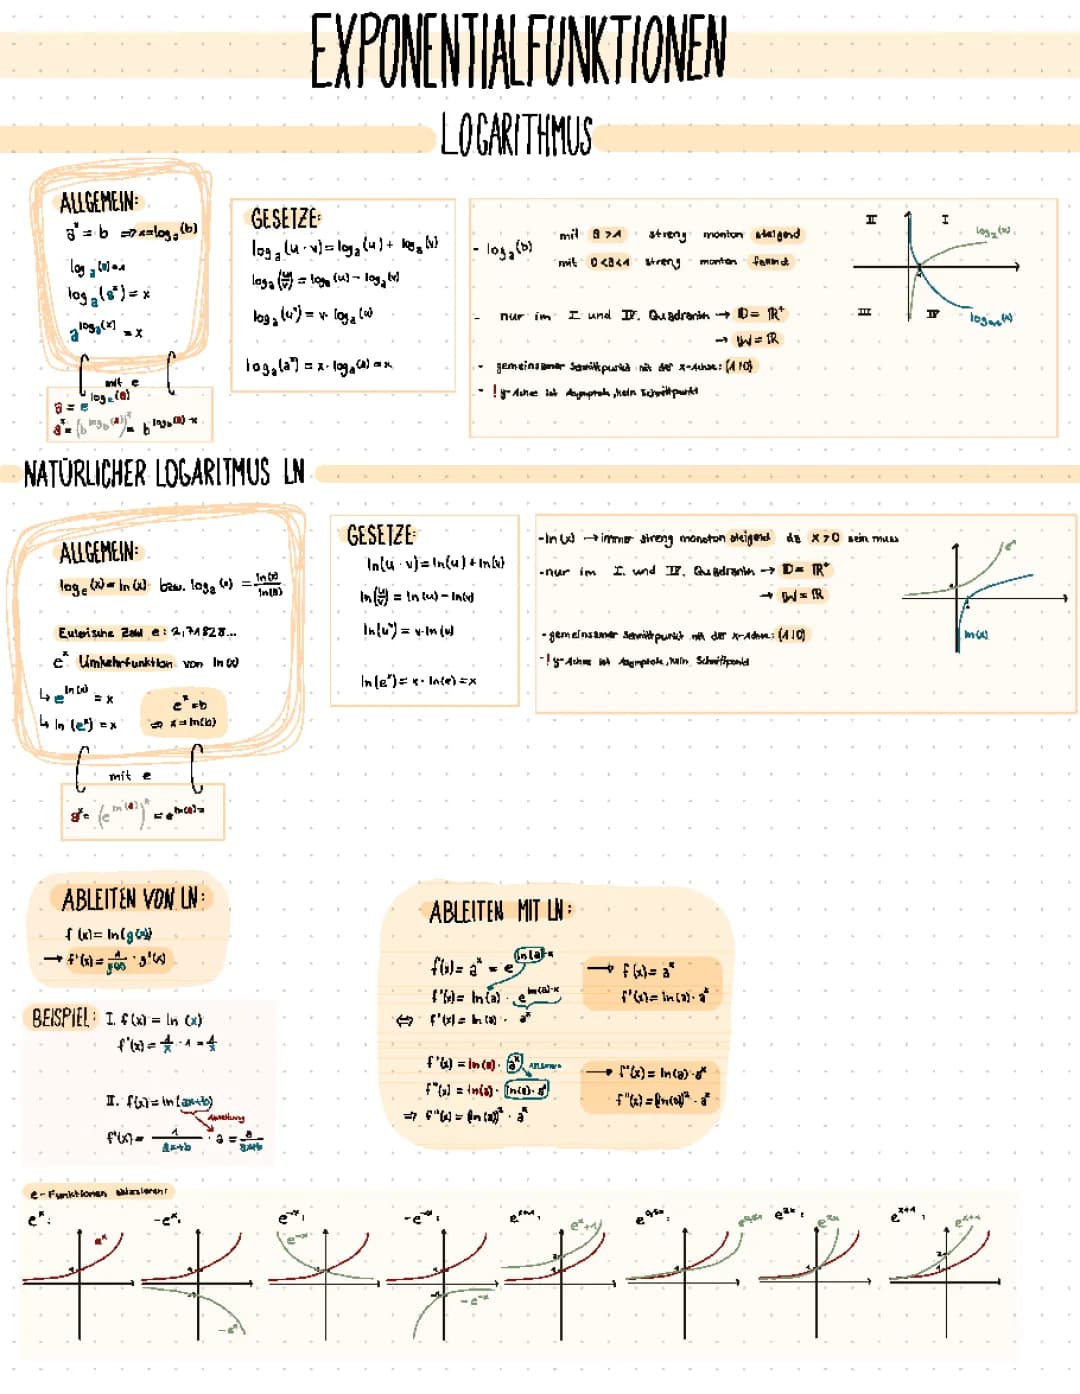 EXPONENTIALFUNKTIONEN
LOGARITHMUS
ALLGEMEIN:
aˣ = b ⇒ x = logₐ(b)
logₐ(a) = 1
logₐ(aˣ) = x
a^logₐ(x) = x
mit e
a = e^logₑ(a)
aˣ = (b^log_b(a))ˣ = b^log_b(a)·x
GESETZE:
logₐ(u · v) = logₐ(u) + logₐ(v)
logₐ(u/v) = logₐ(u) - logₐ(v)
logₐ(uᵛ) = v · logₐ(u)
logₐ(aˣ) = x · logₐ(a) = x
- logₐ(b)
mit a > 1 streng monton steigend
mit 0<a<1 streng monton fallend
- nur im I. und IV. Quadrantn → D = ℝ⁺
→ W = ℝ
- gemeinsamer Schnittpunkt mit der x-Achse: (1|0)
- ! y-Achse ist Asymptote, kein Schnittpunkt
II I
log₂(x)
III IV
NATÜRLICHER LOGARITMUS LN
ALLGEMEIN:
logₑ(x) = ln(x) bzw. logₐ(x) = ln(x)/ln(a)
Eulerische Zahl e: 2,71828...
eˣ Umkehrfunktion von ln(x)
↳ e^ln(x) = x
↳ ln(eˣ) = x
eˣ = b
⇒ x = ln(b)
mit e
aˣ = (e^ln(a))ˣ = e^ln(a)·x
GESETZE:
ln(u · v) = ln(u) + ln(v)
ln(u/v) = ln(u) - ln(v)
ln(uᵛ) = v · ln(u)
ln(eˣ) = x · ln(e) = x
- ln(x) → immer streng monoton steigend da x > 0 sein muss
- nur im I. und IV. Quadrantn → D = ℝ⁺
→ W = ℝ
- gemeinsamer Schnittpunkt mit der x-Achse: (1|0)
- ! y-Achse ist Asymptote, kein Schnittpunkt
eˣ
ln(x)
ABLEITEN VON LN:
f(x) = ln(g(x))
→ f'(x) = 1/g(x) · g'(x)
BEISPIEL: I. f(x) = ln(x)
f'(x) = 1/x · 1 = 1/x
II. f(x) = ln(ax+b)
Ableitung
f'(x) = 1/ax+b · a = a/ax+b
ABLEITEN MIT LN:
f(x) = aˣ = e^ln(a)·x
f'(x) = ln(a) · e^ln(a)·x
⇔ f'(x) = ln(a) · aˣ
→ f(x) = aˣ
f'(x) = ln(a) · aˣ
f'(x) = ln(a) · aˣ Ableiten
f''(x) = ln(a) · ln(a) · aˣ
⇒ f''(x) = (ln(a))² · aˣ
→ f'(x) = ln(a) · aˣ
f''(x) = (ln(a))² · aˣ
e-Funktionen skizzieren:
eˣ: -eˣ: e⁻ˣ: -e⁻ˣ: e^0,5x: e²ˣ: eˣ⁺¹:
eˣ -eˣ e⁻ˣ -e⁻ˣ eˣ+1 e^0,5x e²ˣ eˣ⁺¹